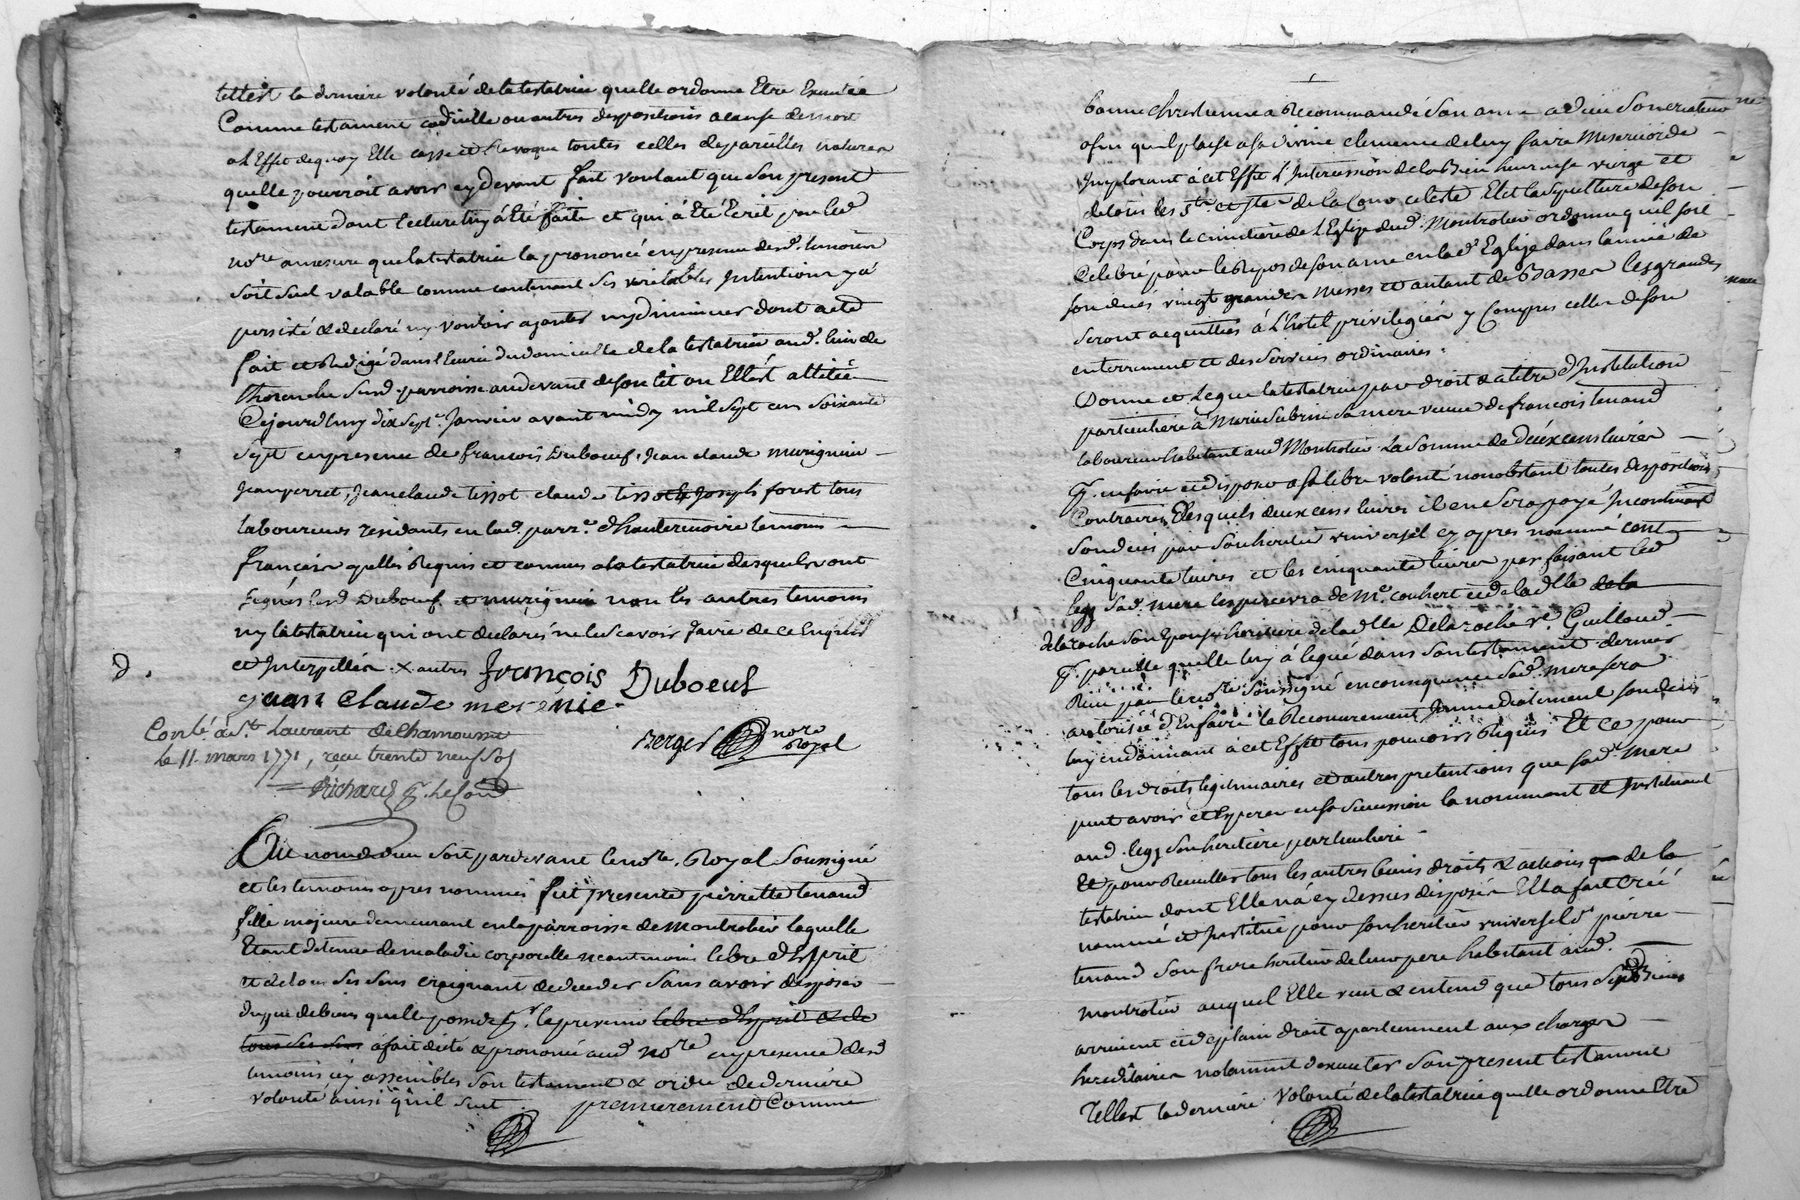 telle est la derniere volonté de la testatrice quelle ordonne Etre Executée
Comme testament codicille ou autres dispositions a cause de mort
a l'Effet de quoy Elle casse et Revoque toutes celles de pareilles natures
quelle pourroit avoir cydevant fait voulant que son present
testament dont lecture luy à Eté faite et qui à Eté Ecrit par led
nore amesure que la testatrice la prononcé en presence desd. temoins
soit seul valable comme contenant ses veritables Intentions y à
persisté & declaré ny vouloir ajouter ny diminuer dont acte
fait et Redigé dans l'Ecurie du domicille de la testatrice aud. lieu de
Thorenche susd. parroisse audevant de son lit ou Elle est allitée
Cejourdhuy dix sept.e Janvier avant midy mil sept cens soixante
sept en presence de francois Duboeuf, Jean claude murignieu
Jean perret, Jean claude tissot claude tissot & Joseph forest tous
laboureurs residants en lad. parr.e d'hauterivoire temoins
francois apellés Requis et connus a la testatrice desquels ont
signés lesd Duboeuf et murignieu non les autres temoins
ny la testatrice qui ont declarés ne le scavoir faire de ce Enquis
et Interpellés x autres François Duboeuf
jean Claude merénie
D.
Conlé à St. Laurent de Chamousset
le 11. mars 1771, recu trente neuf sols
Berger nore Royal
Richard
Au nom de dieu soit pardevant le nore. Royal soussigné
et les temoins apres nommés fut presente pierrette tenand
fille majeure demeurant en la parroisse de Montrotier laquelle
Etant detenue de maladie corporelle neantmoins libre d'Esprit
et de tous ses sens craignant de deceder sans avoir disposée
du peu de biens quelle possede p.r le prevenir libre d'Esprit & de
tous ses sens à fait dicté & prononcé aud nore en presence desd
temoins icy assemblés son testament & ordre de derniere
volonté ainsi quil suit premierement Comme
bonne chretienne a Recommandé son ame a dieu son createur
afin quil plaise a sa divine clemence de luy faire Misericorde
Implorant à cet Effet L'Intercession de la Bien heureuse vierge et
de tous les Sts. et Stes de la Cour celeste Elit la sepulture de son
Corps dans le cimitière de l'Eglise dud. Montrotier ordonne quil soit
Celebré pour le Repos de son ame en lad. Eglise dans l'année de
son deces vingt grandes Messes et autant de Basses les grandes
seront acquittées à L'hotel privilegiés y Compris celles de son
enterrement et des services ordinaires.
Donne et Legue la testatrice par droit & a titre d'Institution
particuliere à Marie Subrin sa mere veuve de francois tenand
laboureur habitant aud Montrotier La somme de deux cens livres
p. en faire et disposer a sa libre volonté nonobstant toutes dispositions
Contraires Desquels deux cens livres il en sera payé Incontinent
son deces par son heritier universel cy apres nommé cent
Cinquante livres et les cinquante livres parfaisant led
legs sad. mere les percevra de Me. coubert et de la dlle de la
delaroche son Epouse heritiere de la dlle Delaroche ve. Guilloud
p. pareille quelle luy à legué dans son testament dernier
Reçu par le nore. soussigné en consequence sad. mere sera
autorisée d'En faire le Recouvrement Immediatement son deces
luy en donnant à cet Effet tous pouvoirs Requis Et ce pour
tous les droits legitimaires et autres pretentions que sad. mere
peut avoir et Esperer en sa succession la nommant et Instituant
aud. legs son heritiere particuliere.
Et pour Recueillir tous les autres biens droits & actions que de la
testatrice dont Elle n'a cy dessus disposée Ella fait Créé
nommé et Institué pour son heritier universel Sr. pierre
tenand son frere heritier de leur pere habitant aud.
montrotier auquel Elle veut & entend que tous sesd Biens
arrivent et de plain droit apartiennent aux charges
hereditaires notamment d'executer son present testament
Telle est la derniere volonté de la testatrice quelle ordonne Etre